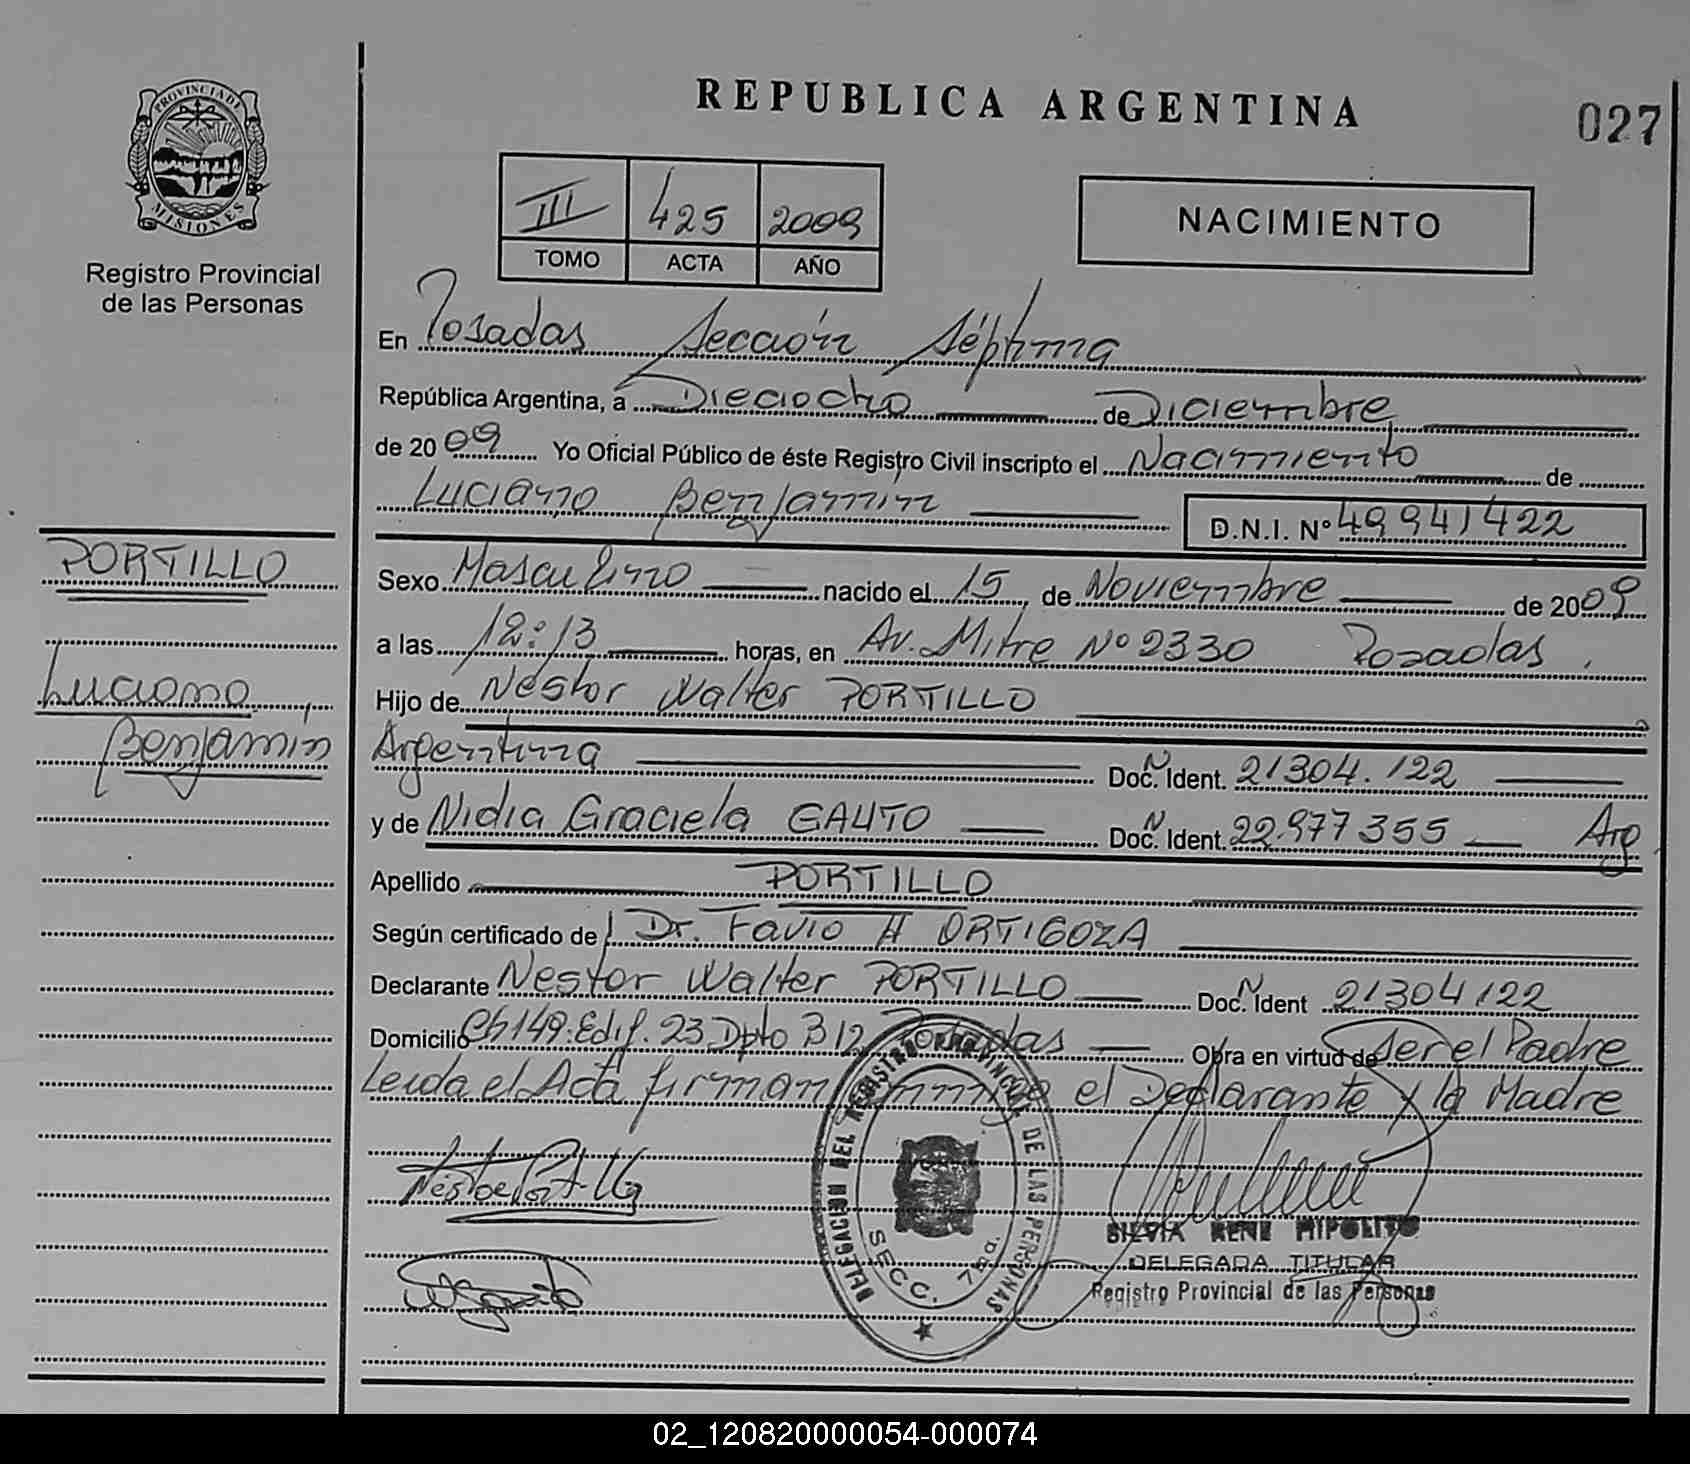 REPUBLICA ARGENTINA
027
PROVINCIA DE
MISIONES
Registro Provincial
de las Personas
III 425 2009
TOMO ACTA AÑO
NACIMIENTO
En Posadas Sección Séptima
República Argentina, a Dieciocho de Diciembre
de 2009 Yo Oficial Público de éste Registro Civil inscripto el Nacimiento de
Luciano Benjamin D.N.I. Nº 49941422
PORTILLO
Luciano
Benjamín
Sexo Masculino nacido el 15 de Noviembre de 2009
a las 12:13 horas, en Av. Mitre Nº 2330 Posadas,
Hijo de Néstor Walter PORTILLO
Argentina Doc. N Ident. 21304.122
y de Nidia Graciela GAUTO Doc. N Ident. 22.977355 Arg
Apellido PORTILLO
Según certificado de Dr. Favio H ORTIGOZA
Declarante Nestor Walter PORTILLO Doc. N Ident 21304122
Domicilio Ch149.Edif. 23 Dpto B 12 Posadas Obra en virtud de Ser el Padre
Leida el Acta firman conmigo el Declarante y la Madre
DELEGACION DEL REGISTRO PROVINCIAL DE LAS PERSONAS
SECC. 7ma.
SILVIA RENE HIPOLITO
DELEGADA TITULAR
Registro Provincial de las Personas
02_120820000054-000074